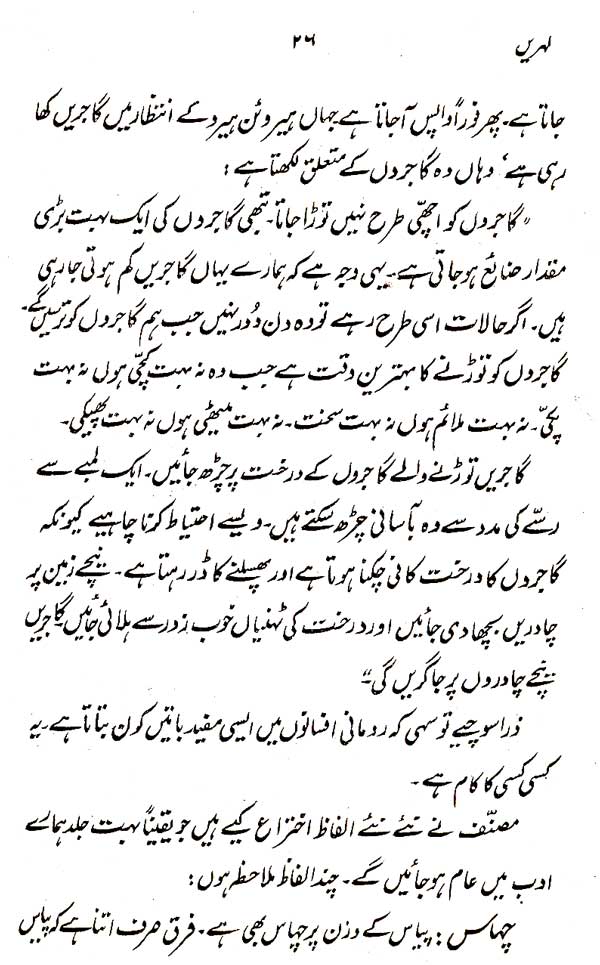 لہریں ۲۶
جاتا ہے۔ پھر فوراً واپس آجاتا ہے جہاں ہیروئن ہیرو کے انتظار میں گاجریں کھا
رہی ہے، وہاں وہ گاجروں کے متعلق لکھتا ہے:
"گاجروں کو اچھی طرح نہیں توڑا جاتا۔ تبھی گاجروں کی ایک بہت بڑی
مقدار ضائع ہوجاتی ہے۔ یہی وجہ ہے کہ ہمارے یہاں گاجریں کم ہوتی جا رہی
ہیں۔ اگر حالات اسی طرح رہے تو وہ دن دُور نہیں جب ہم گاجروں کو ترسیں گے۔
گاجروں کو توڑنے کا بہترین وقت ہے جب وہ نہ بہت کچّی ہوں نہ بہت
پکّی۔ نہ بہت ملائم ہوں نہ بہت سخت۔ نہ بہت میٹھی ہوں نہ بہت پھیکی۔
گاجریں توڑنے والے گاجروں کے درخت پر چڑھ جائیں۔ ایک لمبے سے
رسّے کی مدد سے وہ بآسانی چڑھ سکتے ہیں۔ ویسے احتیاط کرنا چاہیے کیونکہ
گاجروں کا درخت کافی چکنا ہوتا ہے اور پھسلنے کا ڈر رہتا ہے۔ نیچے زمین پر
چادریں بچھا دی جائیں اور درخت کی ٹہنیاں خوب زور سے ہلائی جائیں۔ گاجریں
نیچے چادروں پر جا گریں گی۔"
ذرا سوچیے تو سہی کہ رومانی افسانوں میں ایسی مفید باتیں کون بتاتا ہے۔ یہ
کسی کسی کا کام ہے۔
مصنّف نے نئے نئے الفاظ اختراع کیے ہیں جو یقیناً بہت جلد ہمارے
ادب میں عام ہوجائیں گے۔ چند الفاظ ملاحظہ ہوں:
چہاس: پیاس کے وزن پر چہاس بھی ہے۔ فرق صرف اتنا ہے کہ پیاس